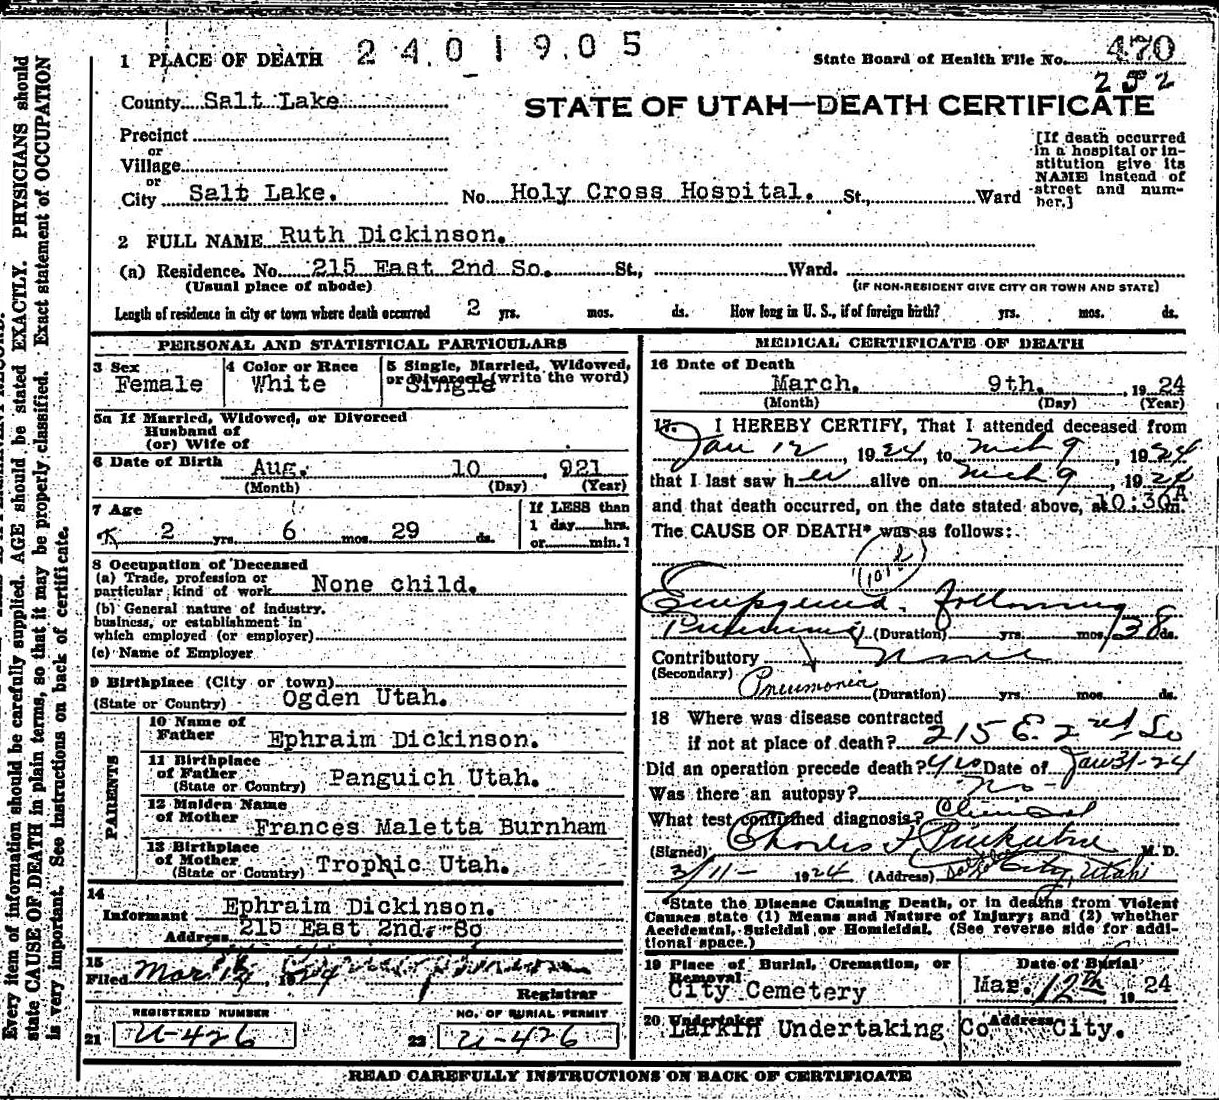 2401905
1 PLACE OF DEATH
State Board of Health File No. 470
252
County Salt Lake
STATE OF UTAH—DEATH CERTIFICATE
Precinct
or
Village
or
City Salt Lake. No. Holy Cross Hospital. St., Ward
[If death occurred
in a hospital or in-
stitution give its
NAME instead of
street and num-
ber.]
2 FULL NAME Ruth Dickinson.
(a) Residence. No. 215 East 2nd So. St., Ward.
(Usual place of abode) (IF NON-RESIDENT GIVE CITY OR TOWN AND STATE)
Length of residence in city or town where death occurred 2 yrs. mos. ds. How long in U. S., if of foreign birth? yrs. mos. ds.
PERSONAL AND STATISTICAL PARTICULARS
3 Sex
Female
4 Color or Race
White
5 Single, Married, Widowed,
or Divorced (write the word)
Single
5a If Married, Widowed, or Divorced
Husband of
(or) Wife of
6 Date of Birth Aug. 10, 921
(Month) (Day) (Year)
7 Age
2 yrs. 6 mos. 29 ds.
If LESS than
1 day hrs.
or min.
8 Occupation of Deceased
(a) Trade, profession or
particular kind of work None child.
(b) General nature of industry,
business, or establishment in
which employed (or employer)
(c) Name of Employer
9 Birthplace (City or town)
(State or Country) Ogden Utah.
PARENTS
10 Name of
Father Ephraim Dickinson.
11 Birthplace
of Father
(State or Country) Panguich Utah.
12 Maiden Name
of Mother Frances Maletta Burnham
13 Birthplace
of Mother
(State or Country) Trophic Utah.
14
Informant Ephraim Dickinson.
Address 215 East 2nd. So
15
Filed Mar 1924
Registrar
REGISTERED NUMBER
21 U-426
NO. OF BURIAL PERMIT
22 U-426
MEDICAL CERTIFICATE OF DEATH
16 Date of Death
March. 9th. , 1924
(Month) (Day) (Year)
17. I HEREBY CERTIFY, That I attended deceased from
Jan 12, 1924, to Mch 9, 1924
that I last saw her alive on Mch 9, 1924
and that death occurred, on the date stated above, at 10.30 A m.
The CAUSE OF DEATH* was as follows:
Empyema. following
Pneumonia (Duration) yrs. mos. ds.
Contributory None
(Secondary)
Pneumonia (Duration) yrs. mos. ds.
18 Where was disease contracted
if not at place of death? 215 E. 2nd So
Did an operation precede death? Yes Date of Jan 31-24
Was there an autopsy? No
What test confirmed diagnosis? Clinical
(Signed) Charles F M. D.
3/11- 1924 (Address) City, Utah
*State the Disease Causing Death, or in deaths from Violent
Causes state (1) Means and Nature of Injury; and (2) whether
Accidental, Suicidal or Homicidal. (See reverse side for addi-
tional space.)
19 Place of Burial, Cremation, or
Removal
City Cemetery
Date of Burial
Mar. 12th 1924
20 Undertaker
Larkin Undertaking Co
Address
City.
READ CAREFULLY INSTRUCTIONS ON BACK OF CERTIFICATE
Every item of information should be carefully supplied. AGE should be stated EXACTLY. PHYSICIANS should
state CAUSE OF DEATH in plain terms, so that it may be properly classified. Exact statement of OCCUPATION
is very important. See instructions on back of certificate.